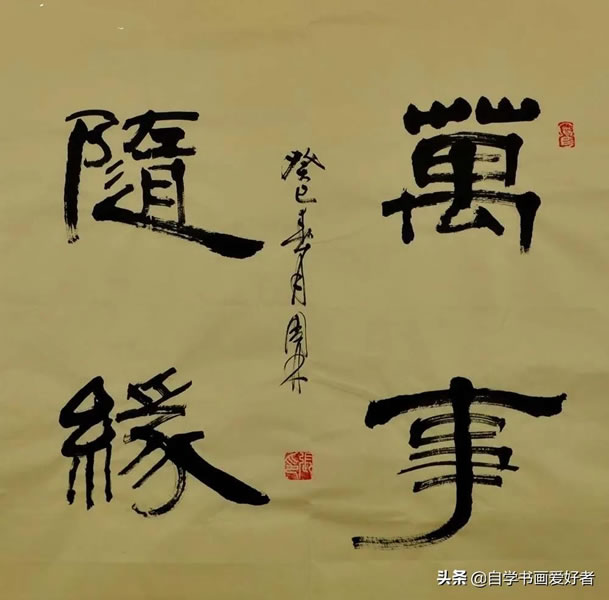 萬事
隨緣
癸巳春月周
头条 @自学书画爱好者